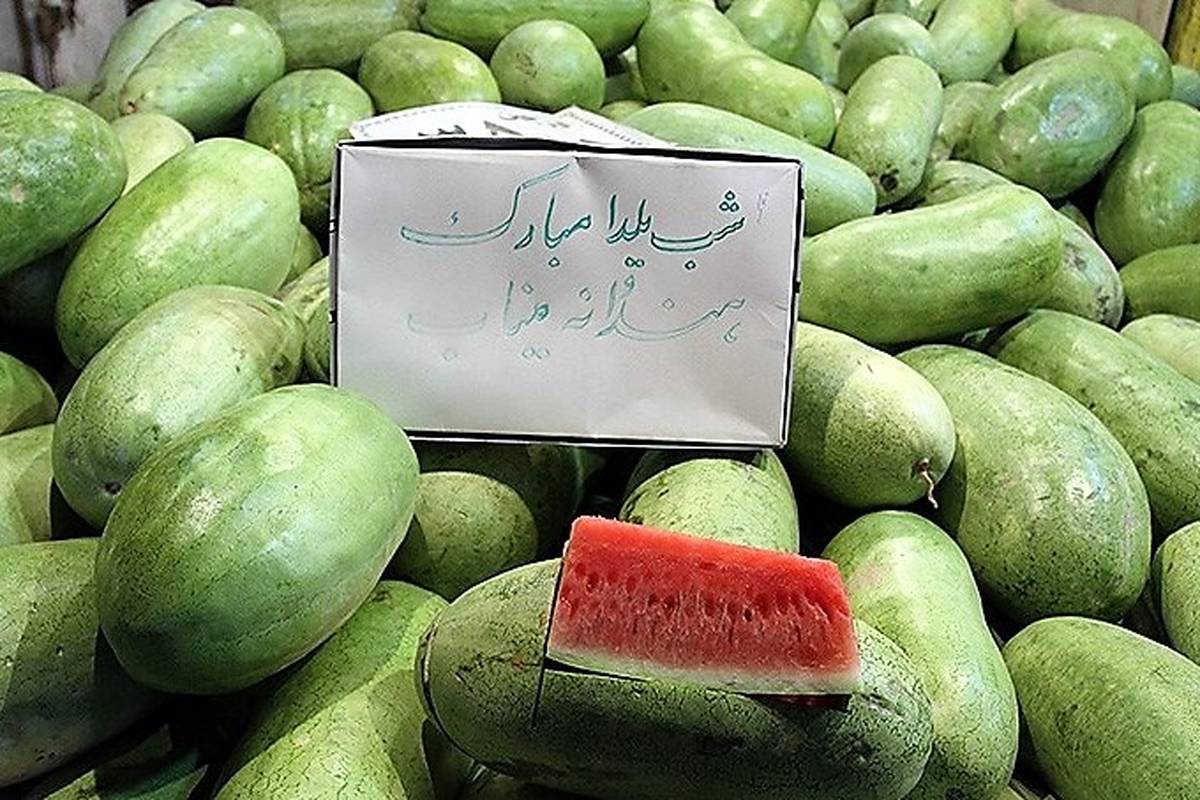 شب یلدا مبارک
هندوانه میناب